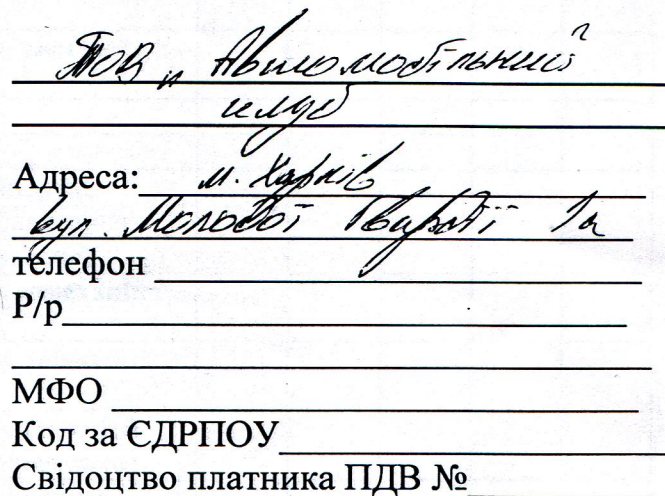 ТОВ „ Автомобільний
клуб
Адреса: м. Харків
вул. Молодої Гвардії 1а
телефон
Р/р
МФО
Код за ЄДРПОУ
Свідоцтво платника ПДВ №